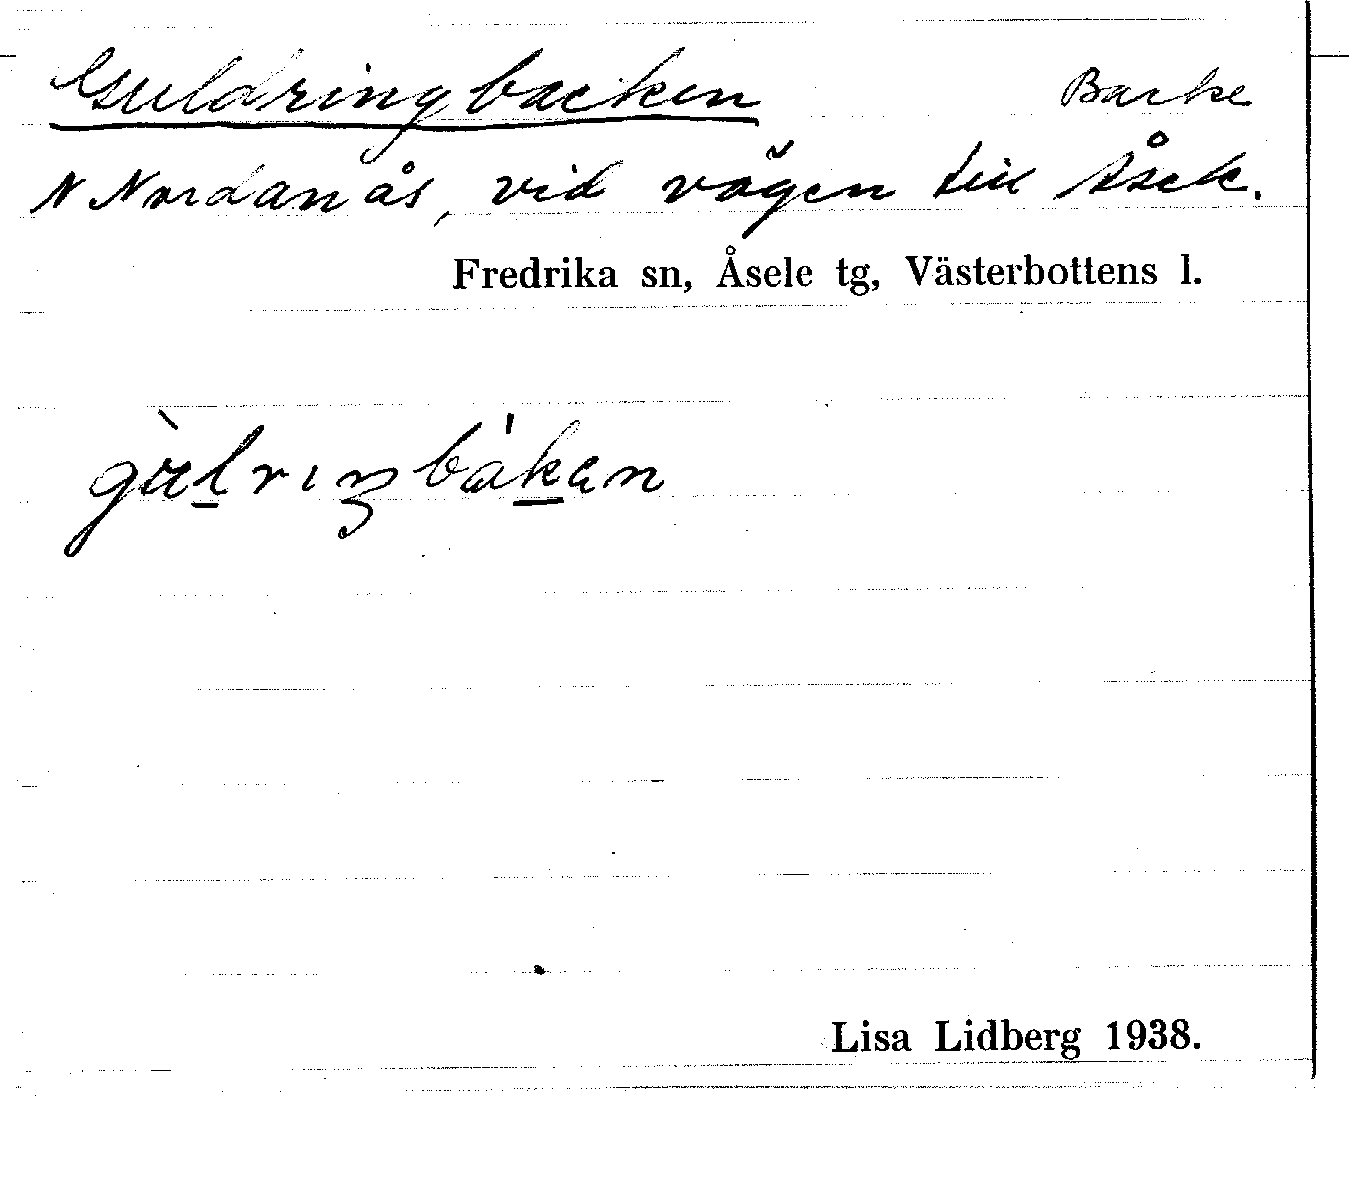 Guldringbacken Backe
N Nordanås, vid vägen till Åsele.
Fredrika sn, Åsele tg, Västerbottens l.
gùl̲rıŋbák̲an
Lisa Lidberg 1938.